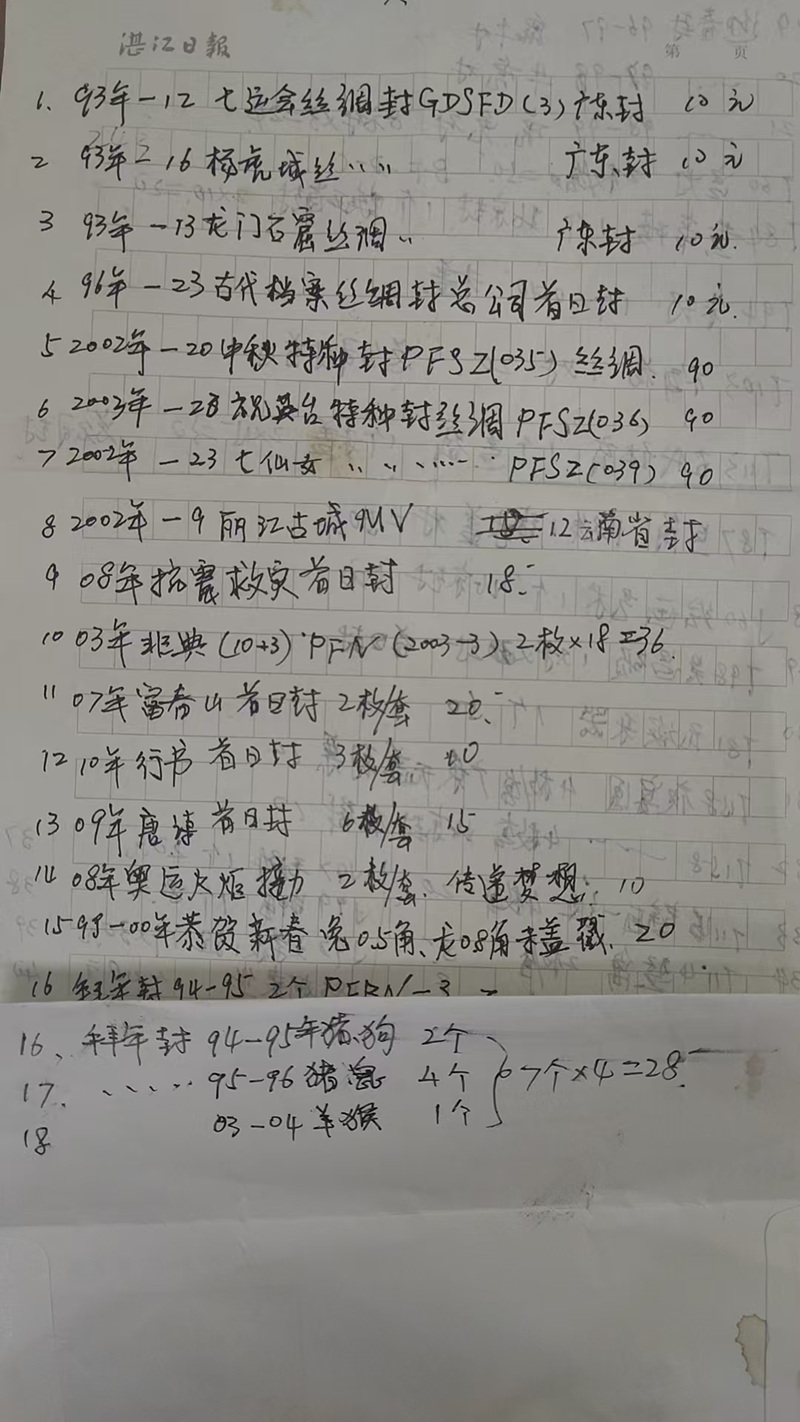 湛江日報
第 页
1、93年-12 七运会丝绸封GDSFD(3)广东封 10元
2 93年-16 杨虎城丝〃〃 广东封 10元
3 93年-13龙门石窟丝绸〃 广东封 10元.
4 96年-23古代档案丝绸封总公司首日封 10元.
5 2002年-20中秋特种封PFSZ(035)丝绸. 90
6 2003年-20祝英台特种封丝绸PFSZ(036) 90
7 2002年-23七仙女 〃〃…… PFSZ(039) 90
8 2002年-9丽江古城MV 12云南省封
9 08年抗震救灾首日封 18.-
10 03年非典(10+3)PFN(2003-3)2枚×18=36.
11 07年富春山首日封2枚/套 20.-
12 10年行书首日封 3枚/套 10
13 09年唐诗首日封 6枚/套 15
14 08年奥运火炬接力 2枚/套. 传递梦想: 10
15 99-00年恭贺新春兔0.5角、龙0.8角未盖戳. 20
16 拜年封94-95 2个
16、拜年封 94-95年猪狗 2个
17、…… 95-96猪鼠 4个 7个×4=28.-
18 03-04羊猴 1个